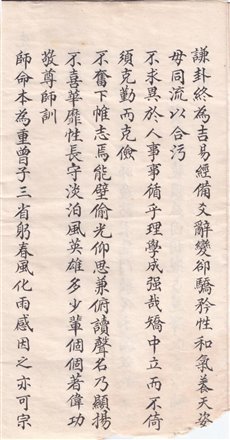 謙卦終為吉易經備爻辭變卻驕矜性和氣養天姿
毋同流以合污
不求異於人事事循乎理學成强哉矯中立而不倚
須克勤而克儉
不奮下帷志焉能壁偷光仰思兼俯讀聲名乃顯揚
不喜華靡性長守淡泊風英雄多少輩個個著偉功
敬尊師訓
師命本為重曾子三省躬春風化雨感因之亦可宗